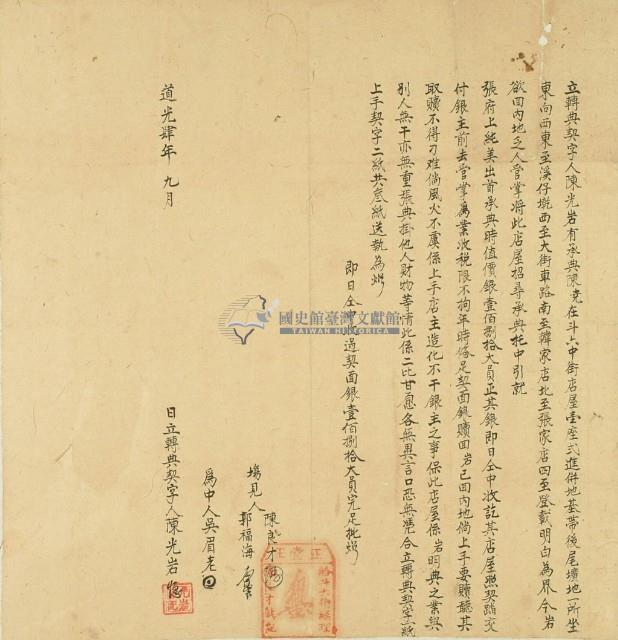 立轉典契字人陳光岩有承典陳亮在斗六中街店屋壹座弍進併地基帶後尾壙地一所坐
東向西東至溪仔墘西至大街車路南至韓家店北至張家店四至登載明白為界今岩
欲回內地乏人管掌將此店屋招尋承典托中引就
張府上純美出首承典時值價銀壹佰捌拾大員正其銀即日仝中收訖其店屋照契踏交
付銀主前去管掌為業收稅限不拘年時備足契面銀贖回岩已回內地倘上手要贖聽其
取贖不得刁难倘風火不虞係上手店主造化不干銀主之事保此店屋係岩明典之業與
別人無干亦無重張典掛他人財物等情此係二比甘愿各無異言口恐無凴合立轉典契字一紙
上手契字二紙共底紙送執為炤
即日仝中收過契面銀壹佰捌拾大員完足批炤
國史館臺灣文獻館
TAIWAN HISTORICA
塲見人
陳良才
郭福海
為中人吳眉老
日立轉典契字人陳光岩
道光肆年 九月